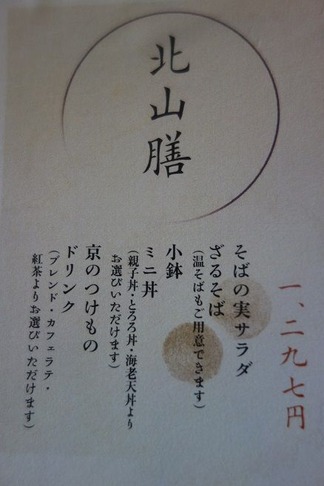 北山膳
一、二九七円
そばの実サラダ
ざるそば
(温そばもご用意できます)
小鉢
ミニ丼
(親子丼・とろろ丼・海老天丼より
お選びいただけます)
京のつけもの
ドリンク
(ブレンド・カフェラテ・
紅茶よりお選びいただけます)